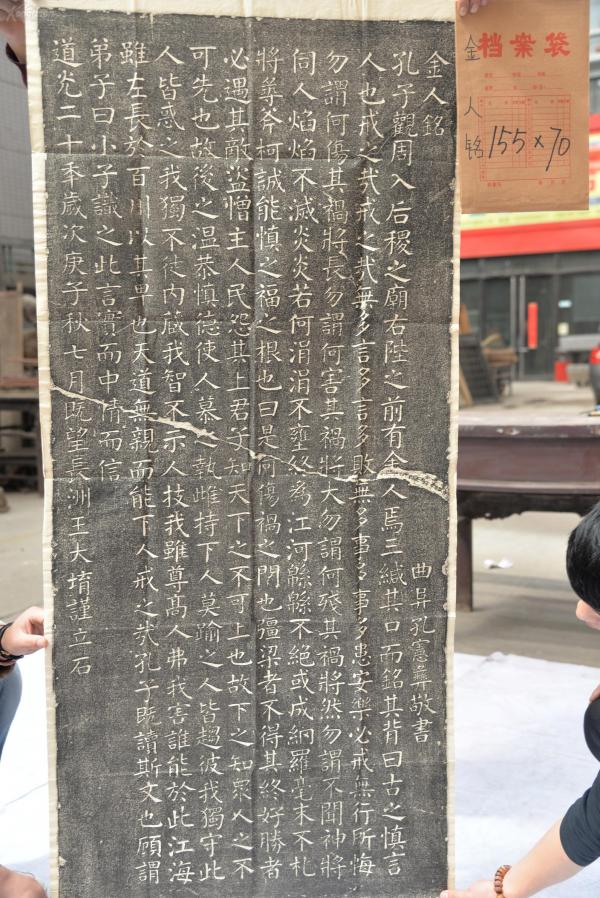 金人銘
曲阜孔憲彝敬書
孔子觀周入后稷之廟右陛之前有金人焉三緘其口而銘其背曰古之慎言
人也戒之哉戒之哉無多言多言多敗無多事多事多患安樂必戒無行所悔
勿謂何傷其禍將長勿謂何害其禍將大勿謂何殘其禍將然勿謂不聞神將
伺人焰焰不滅炎炎若何涓涓不壅終為江河緜緜不絕或成網羅毫末不札
將尋斧柯誠能慎之福之根也曰是何傷禍之門也彊梁者不得其終好勝者
必遇其敵盜憎主人民怨其上君子知天下之不可上也故下之知眾人之不
可先也故後之温恭慎德使人慕之執雌持下人莫踰之人皆趨彼我獨守此
人皆惑之我獨不徙內藏我智不示人技我雖尊高人弗我害誰能於此江海
雖左長於百川以其卑也天道無親而能下人戒之哉孔子既讀斯文也顧謂
弟子曰小子識之此言實而中情而信
道光二十季歲次庚子秋七月既望長洲王大堉謹立石
档案袋
金人铭
155×70